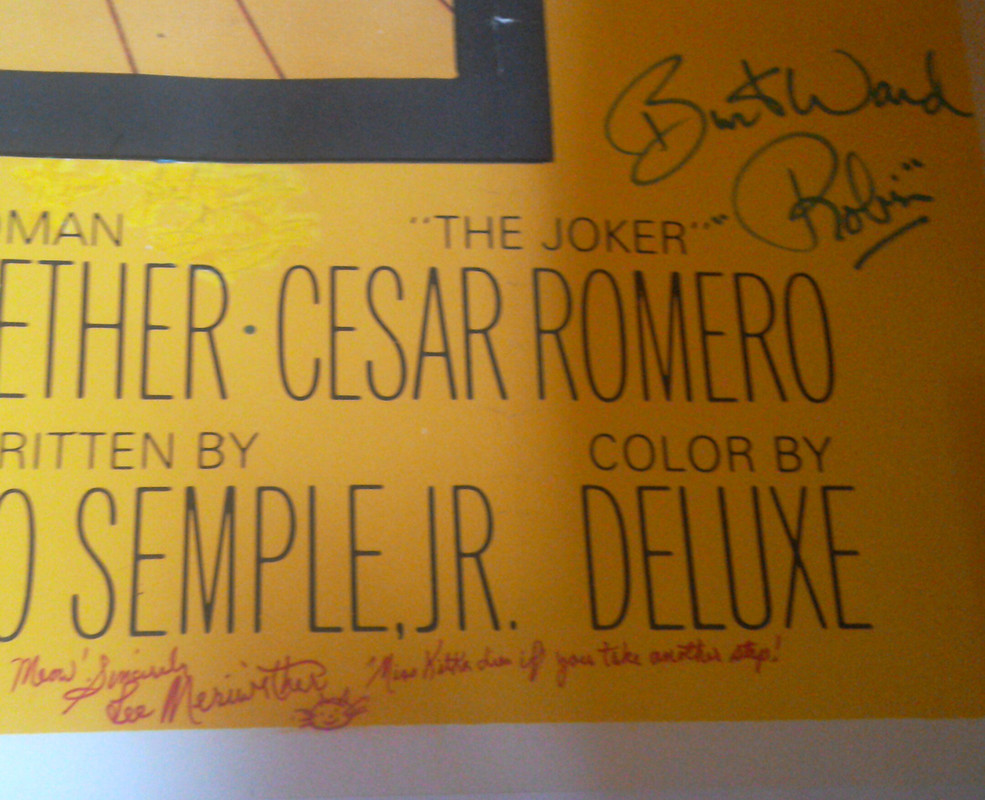 Burt Ward
"Robin"
OMAN "THE JOKER"
ETHER · CESAR ROMERO
RITTEN BY COLOR BY
O SEMPLE, JR. DELUXE
Meow! Sincerely "Miss Kitka dies if you take another step!
Lee Meriwether